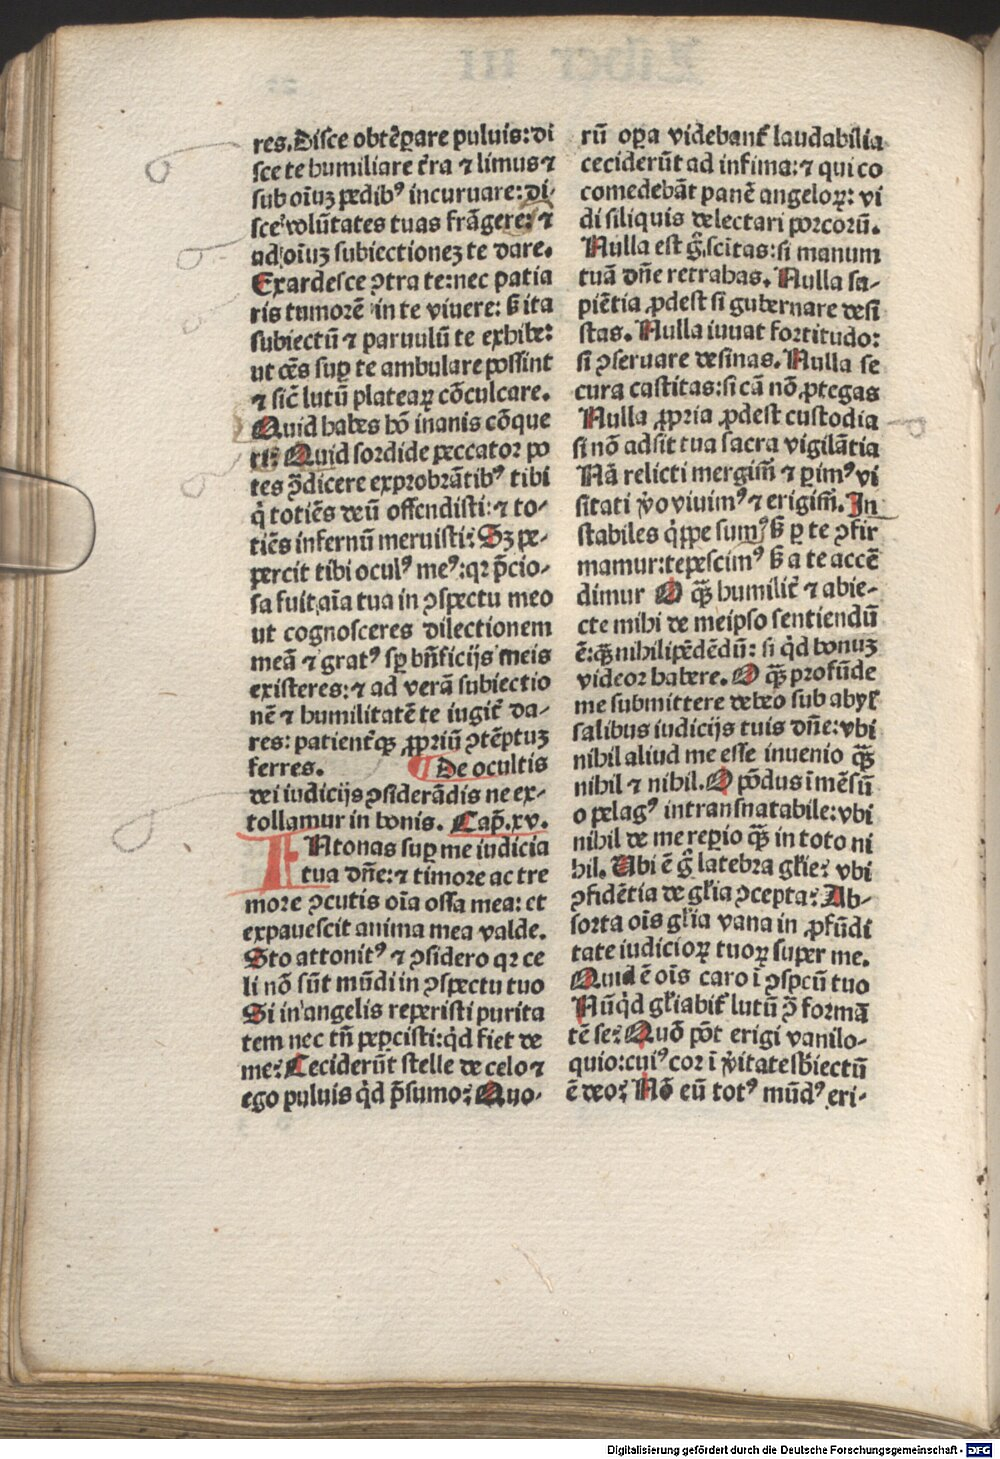 res. Disce obtēꝑare puluis: di
sce te humiliare t̄ra ⁊ limus ⁊
sub oīuꝫ pedibꝰ incuruare: di-
sce volūtates tuas frāgere: ⁊
ad oīuꝫ subiectionez te dare.
Exardesce ꝯtra te: nec patia
ris tumorē in te viuere: ß ita
subiectū ⁊ paruulū te exhibe:
ut oēs suꝑ te ambulare possint
⁊ sic̄ lutū plateaꝝ cōculcare.
Quid habes hō inanis cōque
ri: Quid sordide peccator po
tes ꝯ̄dicere exprobrātibꝰ tibi
q̇ totiēs deū offendisti: ⁊ to-
tiēs infernū meruisti: Sꝫ pe-
percit tibi oculꝰ meꝰ: qꝛ p̄cio-
sa fuit aīa tua in ꝯspectu meo
ut cognosceres dilectionem
meā ⁊ gratꝰ sꝑ bn̄ficijs meis
existeres: ⁊ ad verā subiectio
nē ⁊ humilitatē te iugit̄ da-
res: patient̄qꝫ ꝓpriū ꝯtēptuꝫ
ferres. ¶ De ocultis
dei iudicijs ꝯsiderādis ne ex-
tollamur in bonis. Cap̄. xv.
INtonas suꝑ me iudicia
tua dn̄e: ⁊ timore ac tre
more ꝯcutis oīa ossa mea: et
expauescit anima mea valde.
Sto attonitꝰ ⁊ ꝯsidero qꝛ ce
li nō sūt mūdi in ꝯspectu tuo
Si in angelis reperisti purita
tem nec tn̄ peꝑcisti: qd̓ fiet de
me: Ceciderūt stelle de celo ⁊
ego puluis qd̓ p̄sumo: Quo-
rū oꝑa videbant̄ laudabilia
ceciderūt ad infima: ⁊ qui co
comedebāt panē angeloꝝ: vi
di siliquis delectari porcorū.
Nulla est g̊ scītas: si manum
tuā dn̄e retrahas. Nulla sa-
piētia ꝓdest si gubernare desi
stas. Nulla iuuat fortitudo:
si ꝯseruare desinas. Nulla se
cura castitas: si eā nō ꝓtegas
Nulla ꝓpria ꝓdest custodia
si nō adsit tua sacra vigilātia
Nā relicti mergim̄ ⁊ ꝑimꝰ vi
sitati v̊o viuimꝰ ⁊ erigim̄. In
stabiles q̇ppe sumꝰ ß ꝑ te ꝯfir
mamur: tepescimꝰ ß a te accē
dimur O qꝫ̄ humilit̄ ⁊ abie-
cte mihi de meipso sentiendū
ē: qꝫ̄ nihilipēdēdū: si qd̓ bonuꝫ
videor habere. O qꝫ̄ profūde
me submittere debeo sub abys̄
salibus iudicijs tuis dn̄e: vbi
nihil aliud me esse inuenio qꝫ̄
nihil ⁊ nihil. O pōdus īmēsū
o pelagꝰ intransnatabile: vbi
nihil de me reꝑio qꝫ̄ in toto ni
hil. Ubi ē g̊ latebra gl̄ie: vbi
ꝯfidētia de gl̄ia ꝯcepta: Ab-
sorta oīs gl̄ia vana in ꝓfūdi
tate iudicioꝝ tuoꝝ super me.
Quid ē oīs caro ī ꝯspcū tuo
Nūqd̓ gl̄iabit̄ lutū ꝯ̄ formā
tē se: Quō pōt erigi vanilo-
quio: cuiꝰ cor ī v̊itate sb̄iectū
ē deo: Nō eū totꝰ mūdꝰ eri-
Digitalisierung gefördert durch die Deutsche Forschungsgemeinschaft - DFG